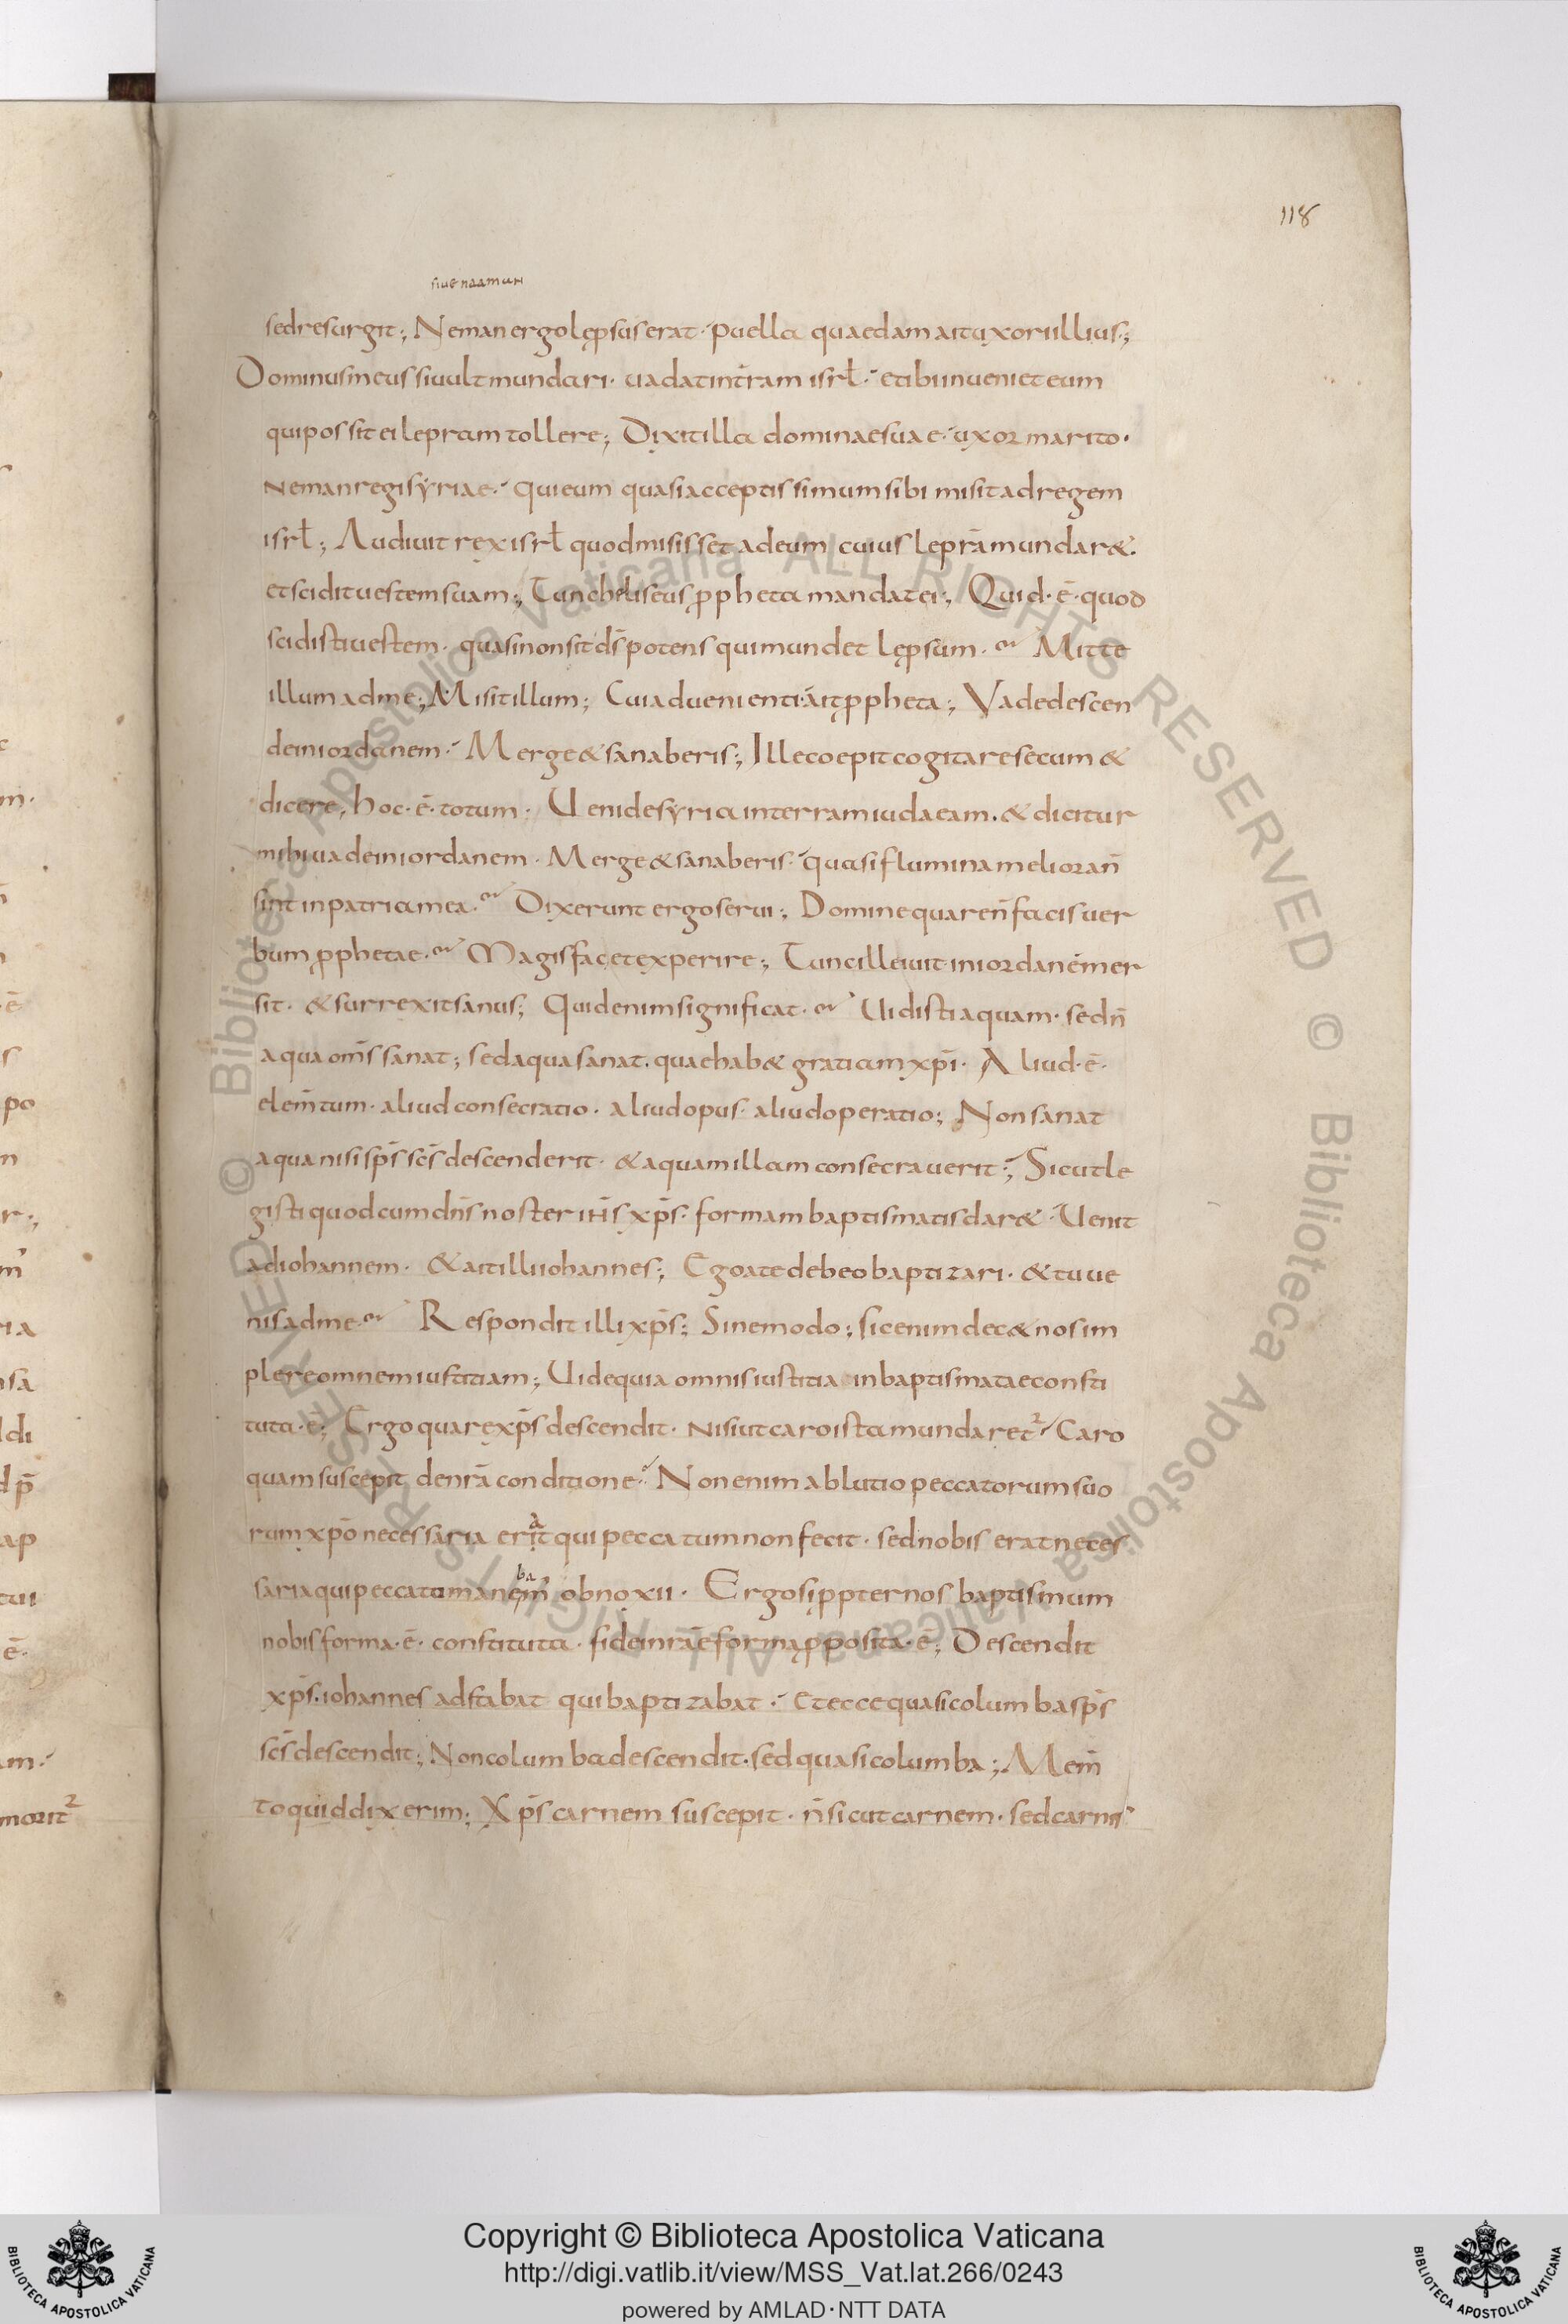 118
siue naaman
sed resurgit; Neman ergo lępsus erat· puella quaedam ait uxori illius;
Dominus meus si uult mundari· uadat in tr̄am isrł· et ibi inueniet eum
qui possit ei lepram tollere; Dixit illa dominae suae· uxor marito·
Neman regi syriae· qui eum quasi acceptissimum sibi misit ad regem
isrł; Audiuit rex isrł quod misisset ad eum cuius leprā mundar&·
et scidit uestem suam; Tunc heliseus ꝓpheta mandat ei; Quid·ē·quod
scidisti uestem· quasi non sit d̄s potens qui mundet lępsum· Mitte
illum ad me; Misit illum; Cui aduenienti·āit ꝓpheta; Vade descen
de in iordanem· Merge & sanaberis; Ille coepit cogitare secum &
dicere, hoc·ē·totum· Ueni de syria in terram iudaeam. & dicitur
mihi uade in iordanem· Merge & sanaberis· quasi flumina meliora n̄
sint in patria mea· Dixerunt ergo serui; Domine quare n̄ facis uer
bum ꝓphetae· Magis fac et experire; Tunc ille iuit in iordanē mer
sit· & surrexit sanus; Quid enim significat· Uidisti aquam· sed n̄
aqua om̄s sanat; sed aqua sanat. quae hab& gratiam xp̄i· Aliud·ē·
elem̄tum· aliud consecratio· aliud opus· aliud operatio; Non sanat
aqua nisi sp̄s sc̄s descenderit· & aquam illam consecrauerit; Sicut le
gisti quod cum dn̄s noster ih̄s xp̄s· formam baptismatis dar&· Uenit
ad iohannem· & ait illi iohannes; Ego a te debeo baptizari· & tu ue
nis ad me· Respondit illi xp̄s; Sine modo; sic enim dec& nos im
plere omnem iustitiam; Uide quia omnis iustitia in baptismatae consti
tuta·ē; Ergo quare xp̄s descendit· nisi ut caro ista mundaret²· Caro
quam suscepit de nr̄a conditione· Non enim ablutio peccatorum suo
rum xp̄o necessaria erit a qui peccatum non fecit· sed nobis erat neces
saria qui peccato manem̄ ba obnoxii· Ergo si ꝓpter nos baptismum
nobis forma·ē·constituta· fidei nr̄ae forma ꝓposita·ē; Descendit
xp̄s. iohannes adstabat qui baptizabat· et ecce quasi columba sp̄s
sc̄s descendit; Non columba descendit· sed quasi columba; Mem̄
to quid dixerim; Xp̄s carnem suscepit· n̄ sicut carnem· sed carnis
© Biblioteca Apostolica Vaticana ALL RIGHTS RESERVED © Biblioteca Apostolica Vaticana ALL RIGHTS RESERVED
Copyright © Biblioteca Apostolica Vaticana
http://digi.vatlib.it/view/MSS_Vat.lat.266/0243
powered by AMLAD·NTT DATA
BIBLIOTECA APOSTOLICA VATICANA
BIBLIOTECA APOSTOLICA VATICANA